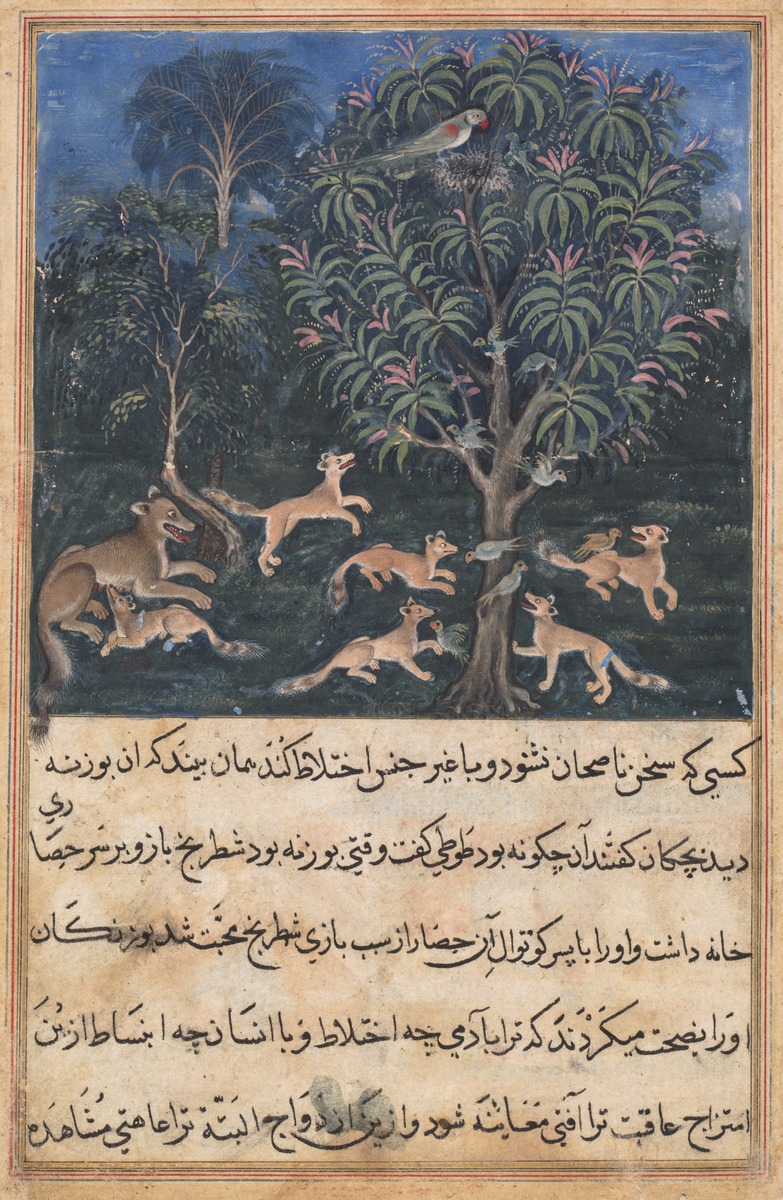 کسی که سخن ناصحان نشنود و با غیر جنس اختلاط کند همان بیند که ان بوزنه
دید بچکان کفتند آن چکونه بود طوطی کفت وقتی بوزنه بود شطرنج باز و بر سر حصاری
خانه داشت و او را با پسر کوتوال آن حصار از سبب بازی شطرنج محبّت شد بوزنکان
او را نصحت میکردند که ترا با آدمی چه اختلاط و با انسان چه انبساط ازین
امتزاج عاقبت ترا آفتی معاینه شود و ازین ازدواج البتّه ترا عاهتی مشاهده